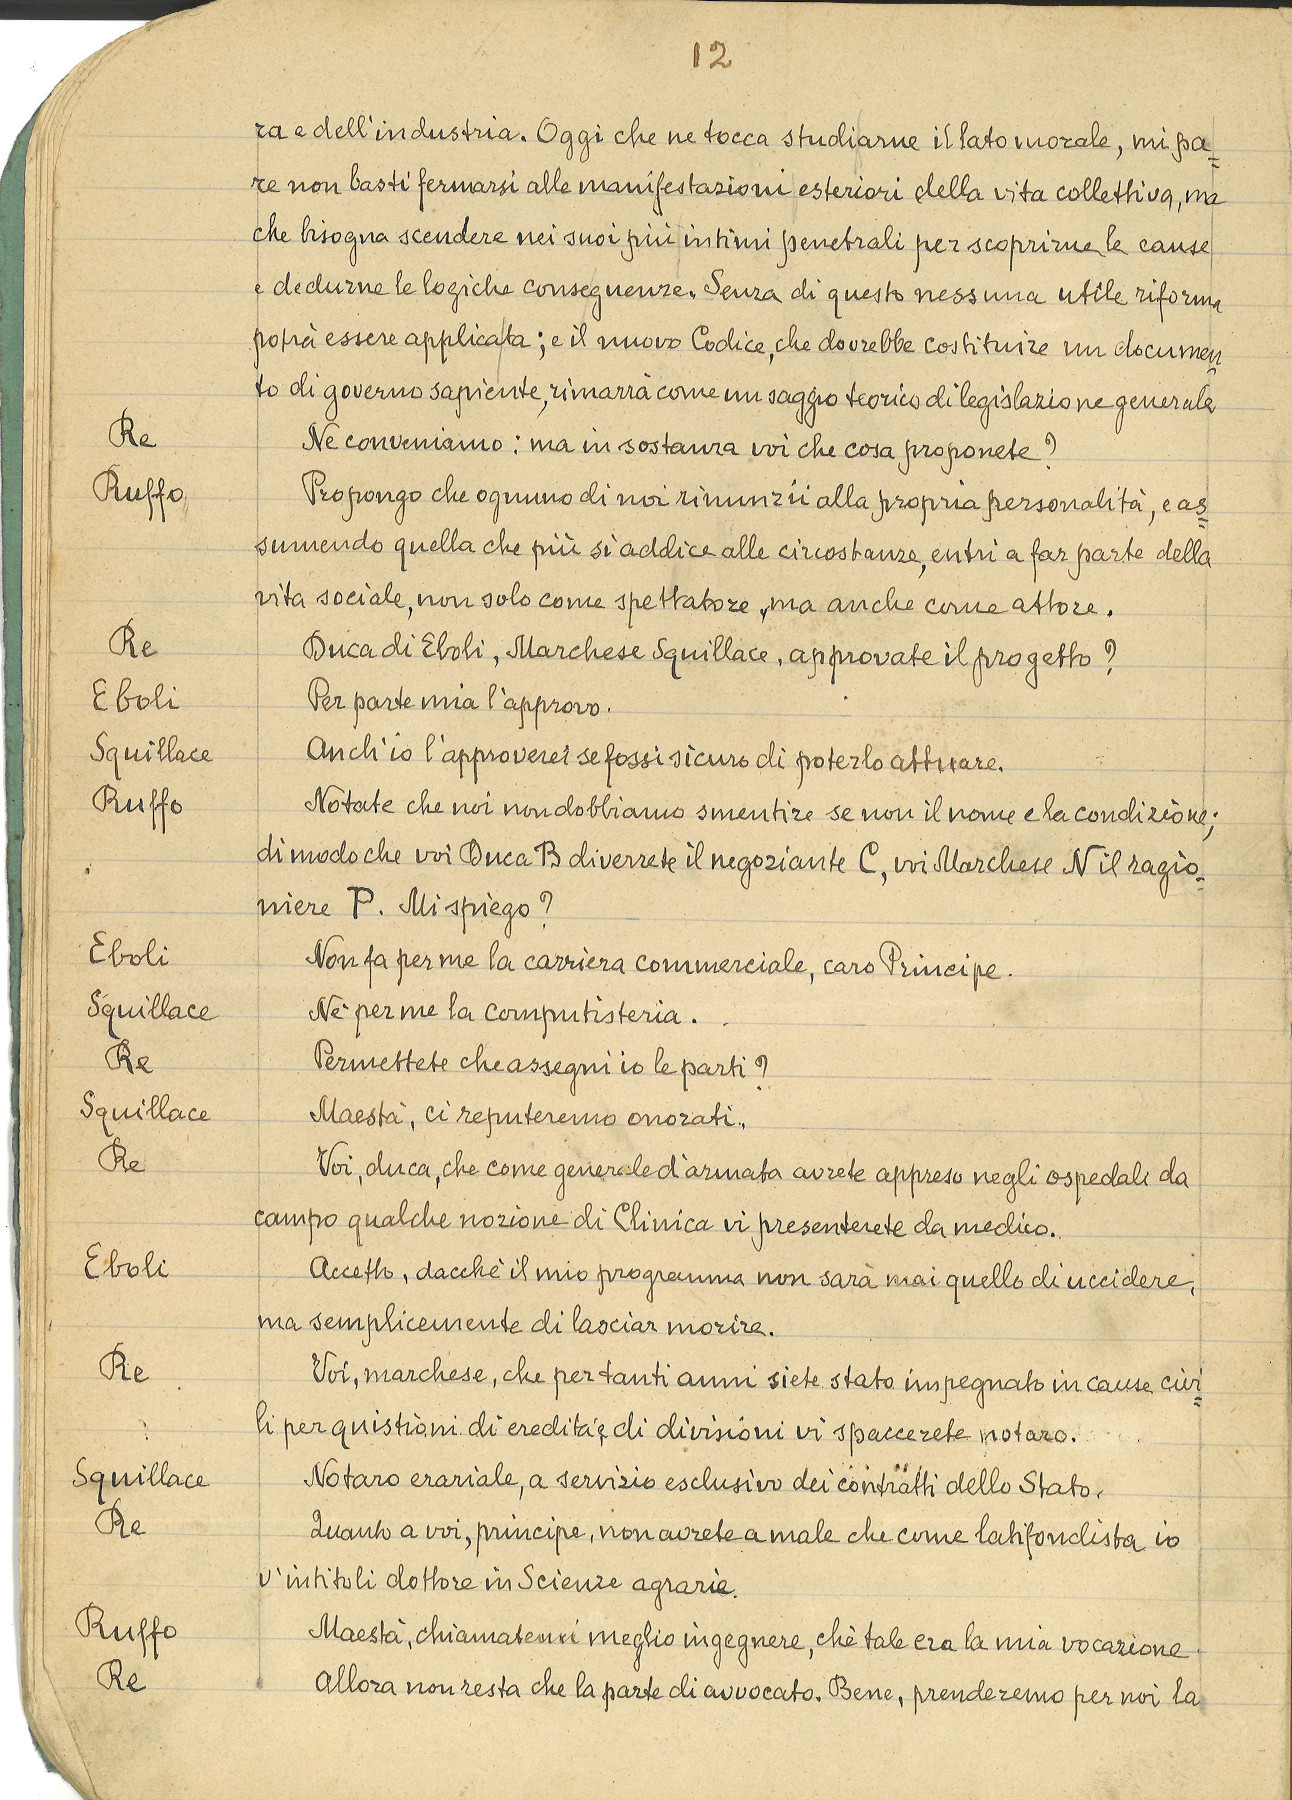 12
ra e dell'industria. Oggi che ne tocca studiarne il lato morale, mi pa=
re non basti fermarsi alle manifestazioni esteriori della vita collettiva, ma
che bisogna scendere nei suoi più intimi penetrali per scoprirne le cause
e dedurne le logiche conseguenze. Senza di questo nessuna utile riforma
potrà essere applicata; e il nuovo Codice, che dovrebbe costituire un documen=
to di governo sapiente, rimarrà come un saggio teorico di legislazione generale
Re Ne conveniamo: ma in sostanza voi che cosa proponete?
Ruffo Propongo che ognuno di noi rinunzii alla propria personalità, e as=
sumendo quella che più si addice alle circostanze, entri a far parte della
vita sociale, non solo come spettatore, ma anche come attore.
Re Duca di Eboli, Marchese Squillace, approvate il progetto?
Eboli Per parte mia l'approvo.
Squillace Anch'io l'approverei se fossi sicuro di poterlo attuare.
Ruffo Notate che noi non dobbiamo smentire se non il nome e la condizione;
di modo che voi Duca B diverrete il negoziante C, voi Marchese N il ragio=
niere P. Mi spiego?
Eboli Non fa per me la carriera commerciale, caro Principe.
Squillace Nè per me la computisteria.
Re Permettete che assegni io le parti?
Squillace Maestà, ci reputeremo onorati.
Re Voi, duca, che come generale d'armata avrete appreso negli ospedali da
campo qualche nozione di Clinica vi presenterete da medico.
Eboli Accetto, dacchè il mio programma non sarà mai quello di uccidere,
ma semplicemente di lasciar morire.
Re Voi, marchese, che per tanti anni siete stato impegnato in cause civi=
li per quistioni di eredità e di divisioni vi spaccerete notaro.
Squillace Notaro erariale, a servizio esclusivo dei contratti dello Stato.
Re Quanto a voi, principe, non avrete a male che come latifondista io
v'intitoli dottore in Scienze agrarie.
Ruffo Maestà, chiamatemi meglio ingegnere, chè tale era la mia vocazione.
Re Allora non resta che la parte di avvocato. Bene, prenderemo per noi la